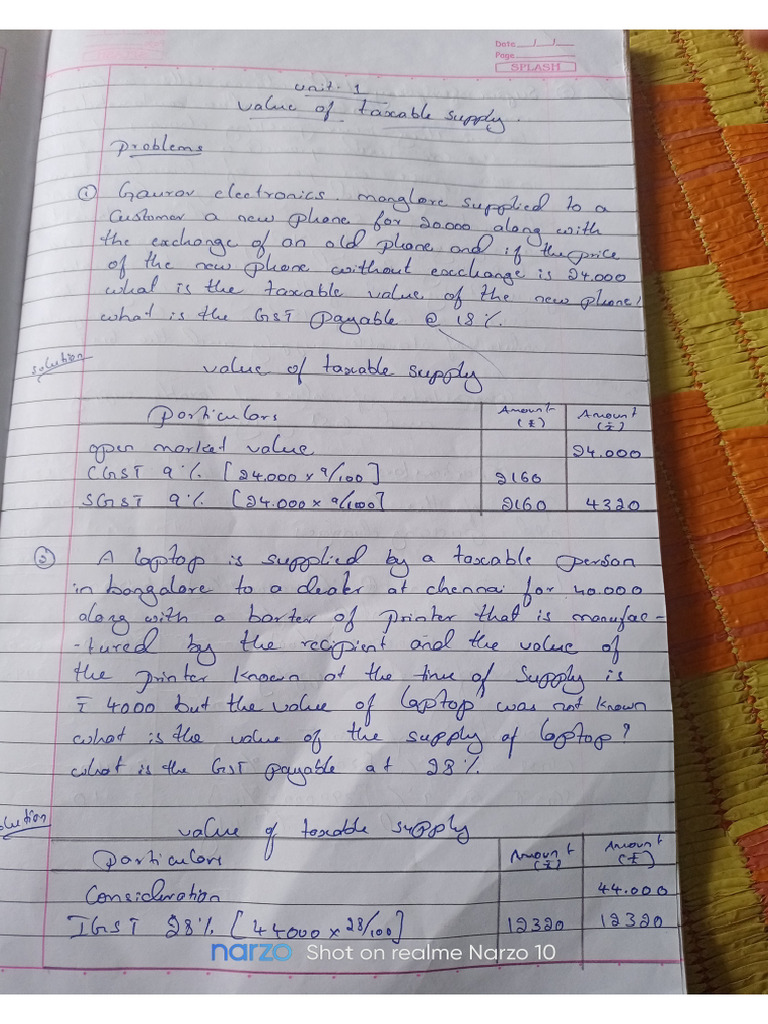 Date / /
Page
SPLASH
unit. 1
value of taxable supply.
Problems
① Gaurav electronics. manglore supplied to a
Customer a new phone for 20.000 along with
the exchange of an old phone and if the price
of the new phone without exchange is 24.000
what is the taxable value of the new phone!
what is the GST payable @ 18%.
solution
value of taxable supply
Particulars Amount (₹) Amount (₹)
open market value 24.000
CGST 9% [24.000 x 9/100] 2160
SGST 9% [24.000 x 9/100] 2160 4320
② A laptop is supplied by a taxable person
in bangalore to a dealer at chennai for 40.000
along with a barter of printer that is manufac-
-tured by the recipient and the value of
the printer known at the time of supply is
₹ 4000 but the value of laptop was not known
what is the value of the supply of laptop?
what is the GST payable at 28%.
olution
value of taxable supply
Particulars Amount (₹) Amount (₹)
Consideration 44.000
IGST 28% [44000 x 28/100] 12320 12320
narzo Shot on realme Narzo 10